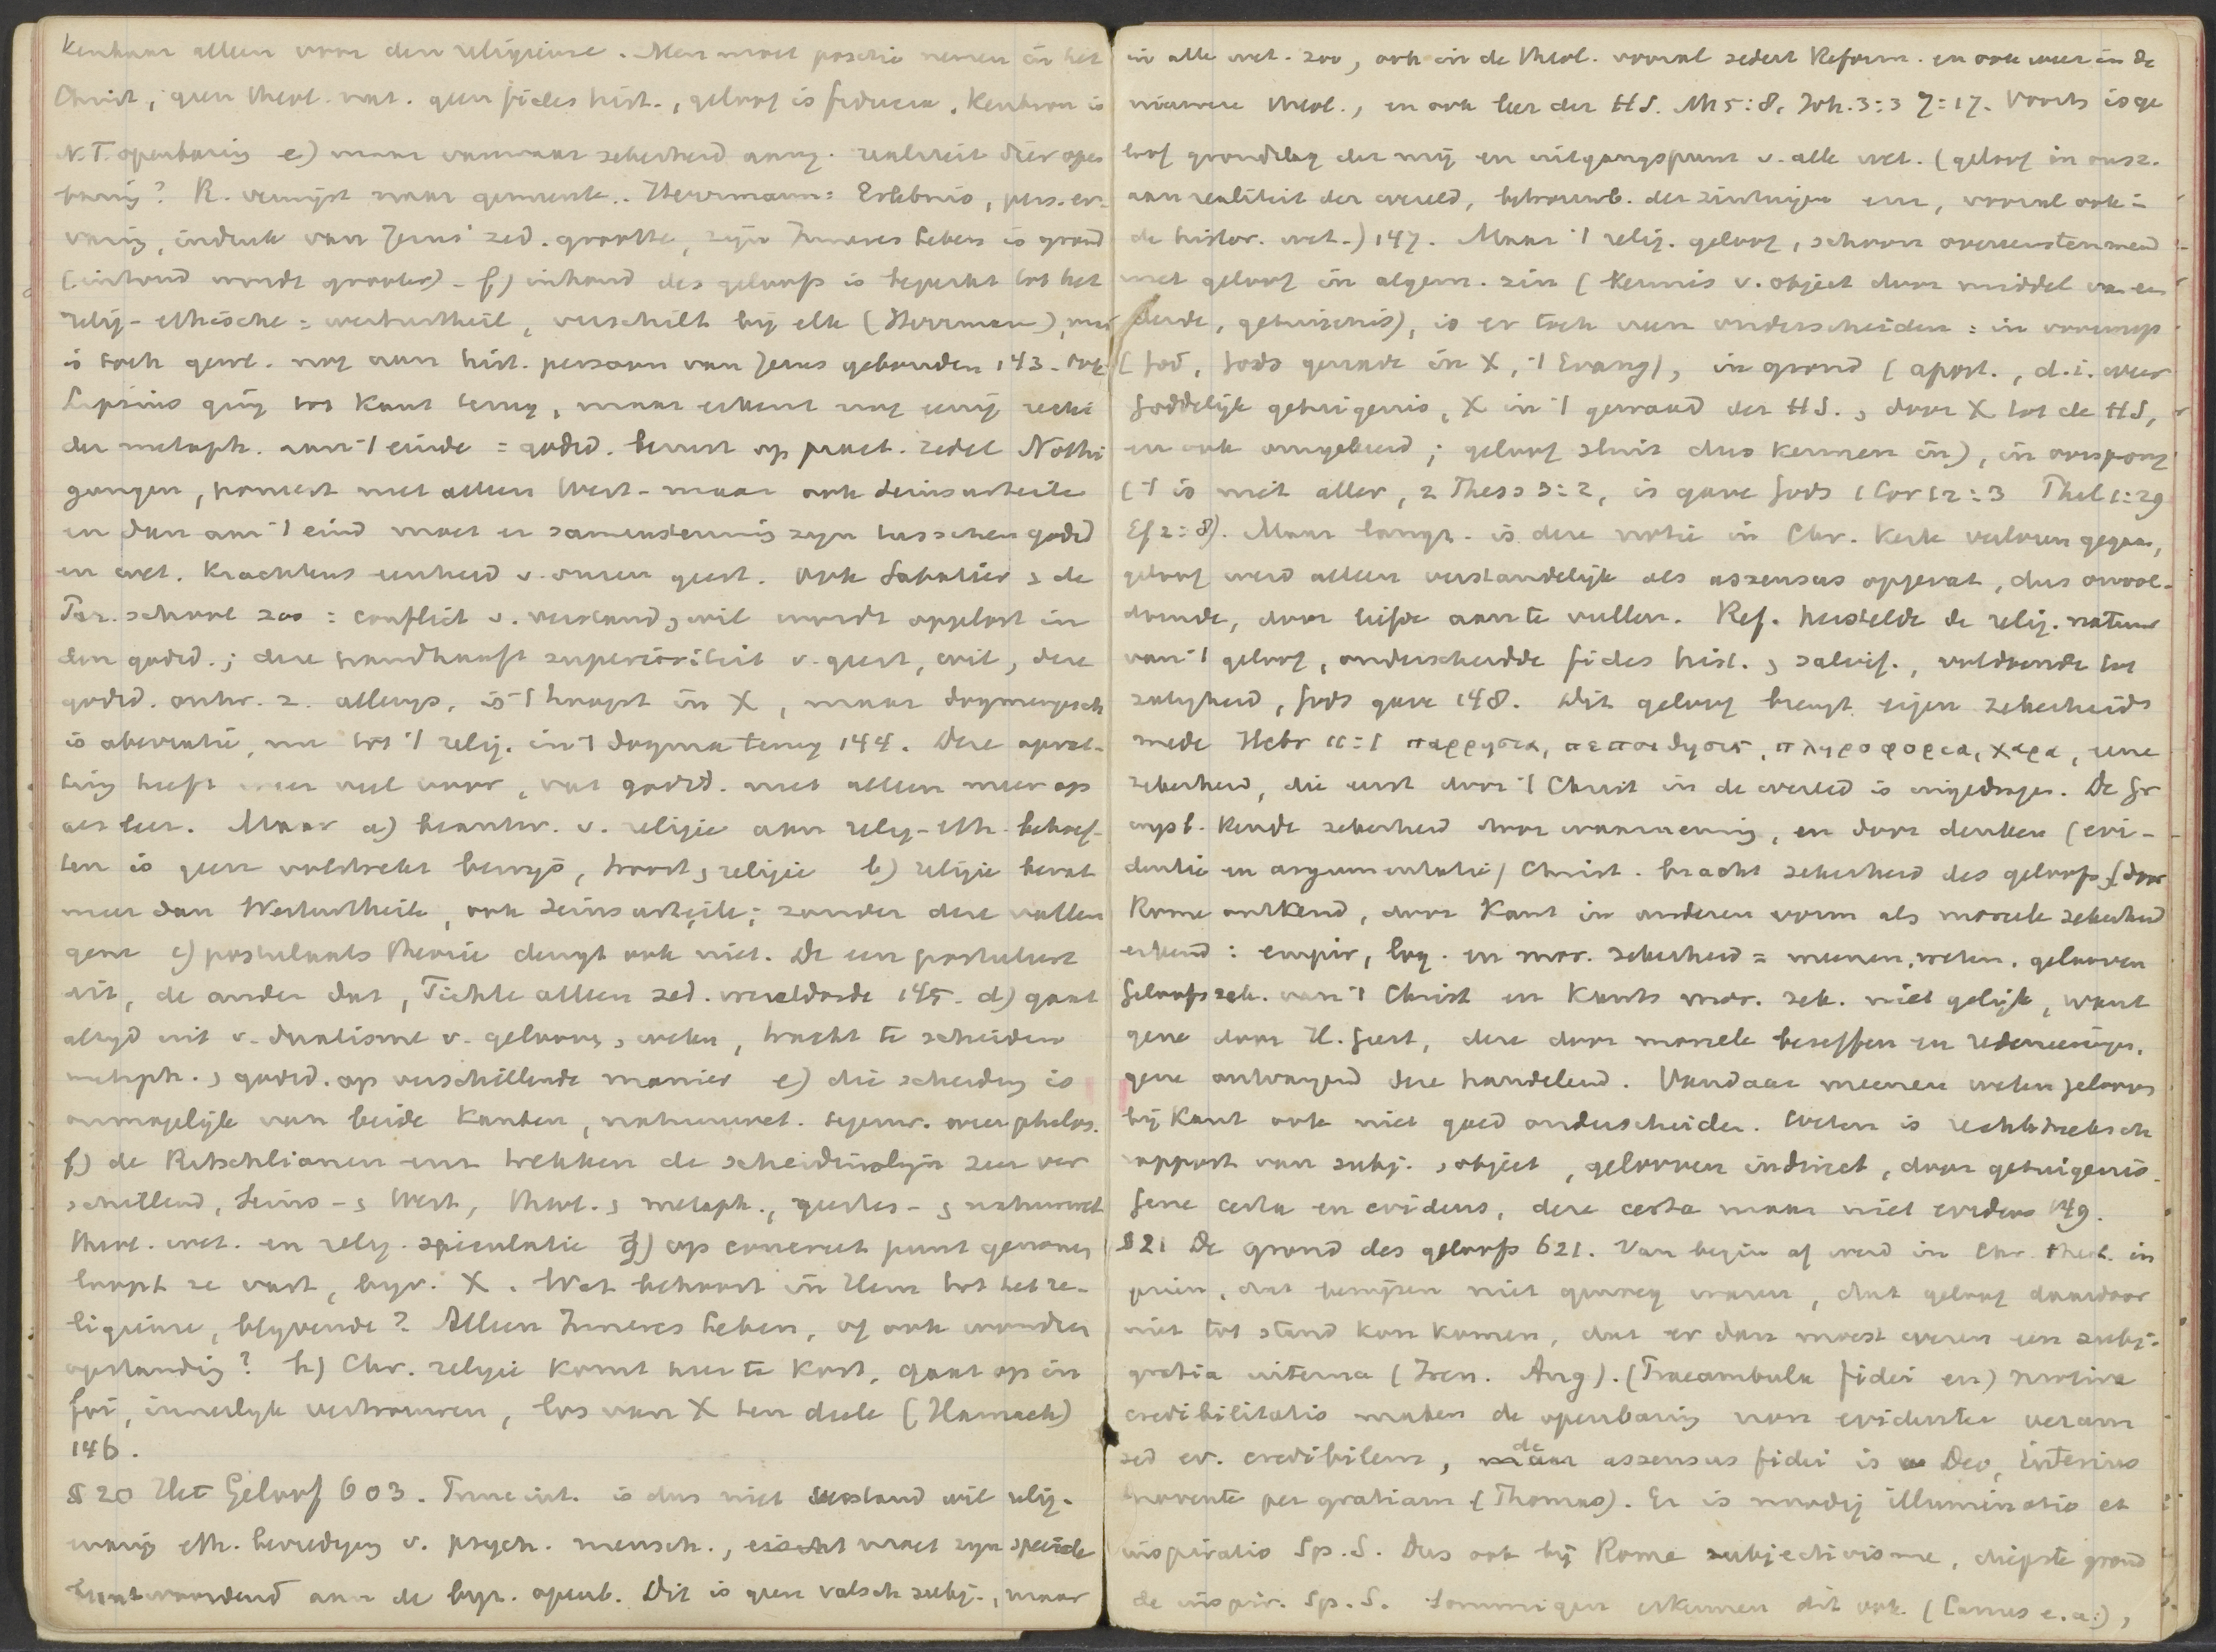 Kenbaar alleen voor den religieuse. Men moet positie nemen in het
Christ, geen theol. nat. geen fides hist., geloof is fiducia. Kenbron is
N.T. openbaring e) maar vanwaar zekerheid aang. realiteit dier open
baring? R. verwijst naar gemeente.. Herrmann: Erlebnis, pers. er-
varing, indruk van Jezus' zed. grootte, zijn Inneres Leben is grond
(inhoud wordt grooter) - f) inhoud des geloofs is beperkt tot het
relig-ethische = werturtheil, verschilt bij elk (Herrman), maar
is toch gewl. nog aan hist. persoon van Jezus gebonden 143. Ook
Lipsius ging tot Kant terug, maar erkent nog eenig recht
der metaph. aan 't einde = godsd. berust op pract. zedel Nöthi
gungen, poneert niet alleen Wert- maar ook Seinsurteile
en dan aan 't eind moet er samenstemming zijn tusschen godsd
en wet. krachtens eenheid v. onzen geest. Ook Sabatier & de
Par. school zoo = conflict v. verstand & wil wordt opgelost in
den godsd.; deze handhaaft superioriteit v. geest, wil, deze
godsd. ontw. z. allengs, is 't hoogst in X, maar dogmengesch
is aberratie, nu tot 't relig. in 't dogma terug 144. Deze opvat-
ting heeft zeer veel voor, vat godsd. niet alleen meer op
als leer. Maar a) beantw. v. religie aan relig-eth. behoef-
ten is geen volstrekt bewijs, troost & religie b) religie bevat
meer dan Werturtheile, ook Seinsurteile; zonder deze vallen
gene c) postulaats theorie deugt ook niet. De een postuleert
dit, de ander dat, Fichte alleen zed. wereldorde 145. d) gaat
altijd uit v. dualisme v. gelooven & weten, tracht te scheiden
metaph. & godsd. op verschillende manier e) die scheiding is
onmogelijk van beide kanten, natuurwet. tegenw. over philos.
f) de Ritschlianen enz trekken de scheidinglijn zeer ver
schillend, Seins- & Wert, theol. & metaph., geestes- & natuurwet
theol. wet. en relig. speculatie g) op concreet punt genomen
loopt ze vast, bijv. X. Wat behoort in Hem tot het re-
ligieuze, blijvende? Alleen Inneres Leben, of ook wonder
opstanding? h) Chr. religie komt hier te kort, gaat op in
foi, innerlijk vertrouwen, los van X ten deele (Harnack)
146.
§ 20 Het Geloof 603. Princ. int. is dus niet verstand wil relig.
ervaring eth. bevrediging v. psych. mensch., moet zijn speciale
beantwoordend aan de bijz. openb. Dit is geen valsch subj., maar
in alle wet. zoo, ook in de theol. vooral sedert Reform. en ook weer in de
nieuwere theol., en ook leer der HS. Mt 5:8, Joh. 3:3 7:17. Voorts is ge
loof grondslag der mij en uitgangspunt v. alle wet. (geloof in onsz.
aan realiteit der wereld, betrouwb. der zintuigen enz, vooral ook in
de histor. wet.) 147. Maar 't relig. geloof, schoon overeenstemmend
met geloof in algem. zin (kennis v. object door middel van een
derde, getuigenis), is er toch van onderscheiden = in voorwerp
(God, Gods genade in X, 't Evang), in grond (apost., d.i. weer
Goddelijk getuigenis, X in 't gewaad der HS., door X tot de HS,
en ook omgekeerd; geloof sluit dus kennen in), in oorsprong
('t is niet aller, 2 Thess 3:2, is gave Gods 1 Cor 12:3 Phil 1:29
Ef 2:8). Maar langz. is deze notie in Chr. Kerk verloren gegaan,
geloof werd alleen verstandelijk als assensus opgevat, dus onvol-
doende, door liefde aan te vullen. Ref. herstelde de relig. natuur
van 't geloof, onderscheidde fides hist. & salvif., voldoende tot
zaligheid, Gods gave 148. Dit geloof brengt eigen zekerheid
mede Hebr 11:1 παρρησια, πεποιθησις, πληροφορια, χαρα, eene
zekerheid, die eerst door 't Christ in de wereld is ingedragen. De Gr
wijsb. kende zekerheid door waarneming, en door denken (evi-
dentie en argumentatie) Christ. bracht zekerheid des geloofs (door
Rome ontkend, door Kant in anderen vorm als moreele zekerheid
erkend: empir, log. en mor. zekerheid = meenen, weten, gelooven
Geloofszek. van 't Christ en Kants mor. zek. niet gelijk, want
gene door H. Geest, deze door moreele beseffen en redeneering.
gene ontvangend deze handelend. Vandaar meenen weten gelooven
bij Kant ook niet goed onderscheiden. Weten is rechtstreeksch
rapport van subj. & object, gelooven indirect, door getuigenis.
Gene certa en evidens, deze certa maar niet evidens 149.
§ 21 De grond des geloofs 621. Van begin af werd in Chr. theol. in
princ., dat bewijzen niet genoeg waren, dat geloof daardoor
niet tot stand kon komen, dat er dan moest wezen een subj.
gratia interna (Iren. Aug). (Praeambula fidei en) motiva
credibilitatis maken de openbaring non evidenter veram
sed ev. credibilem, de assensus fidei is a Deo, interius
movente per gratiam (Thomas). Er is noodig illuminatio et
inspiratio Sp.S. Dus ook bij Rome subjectivisme, diepste grond
de inspir. Sp.S. Sommigen erkennen dit ook (Canus e.a.),